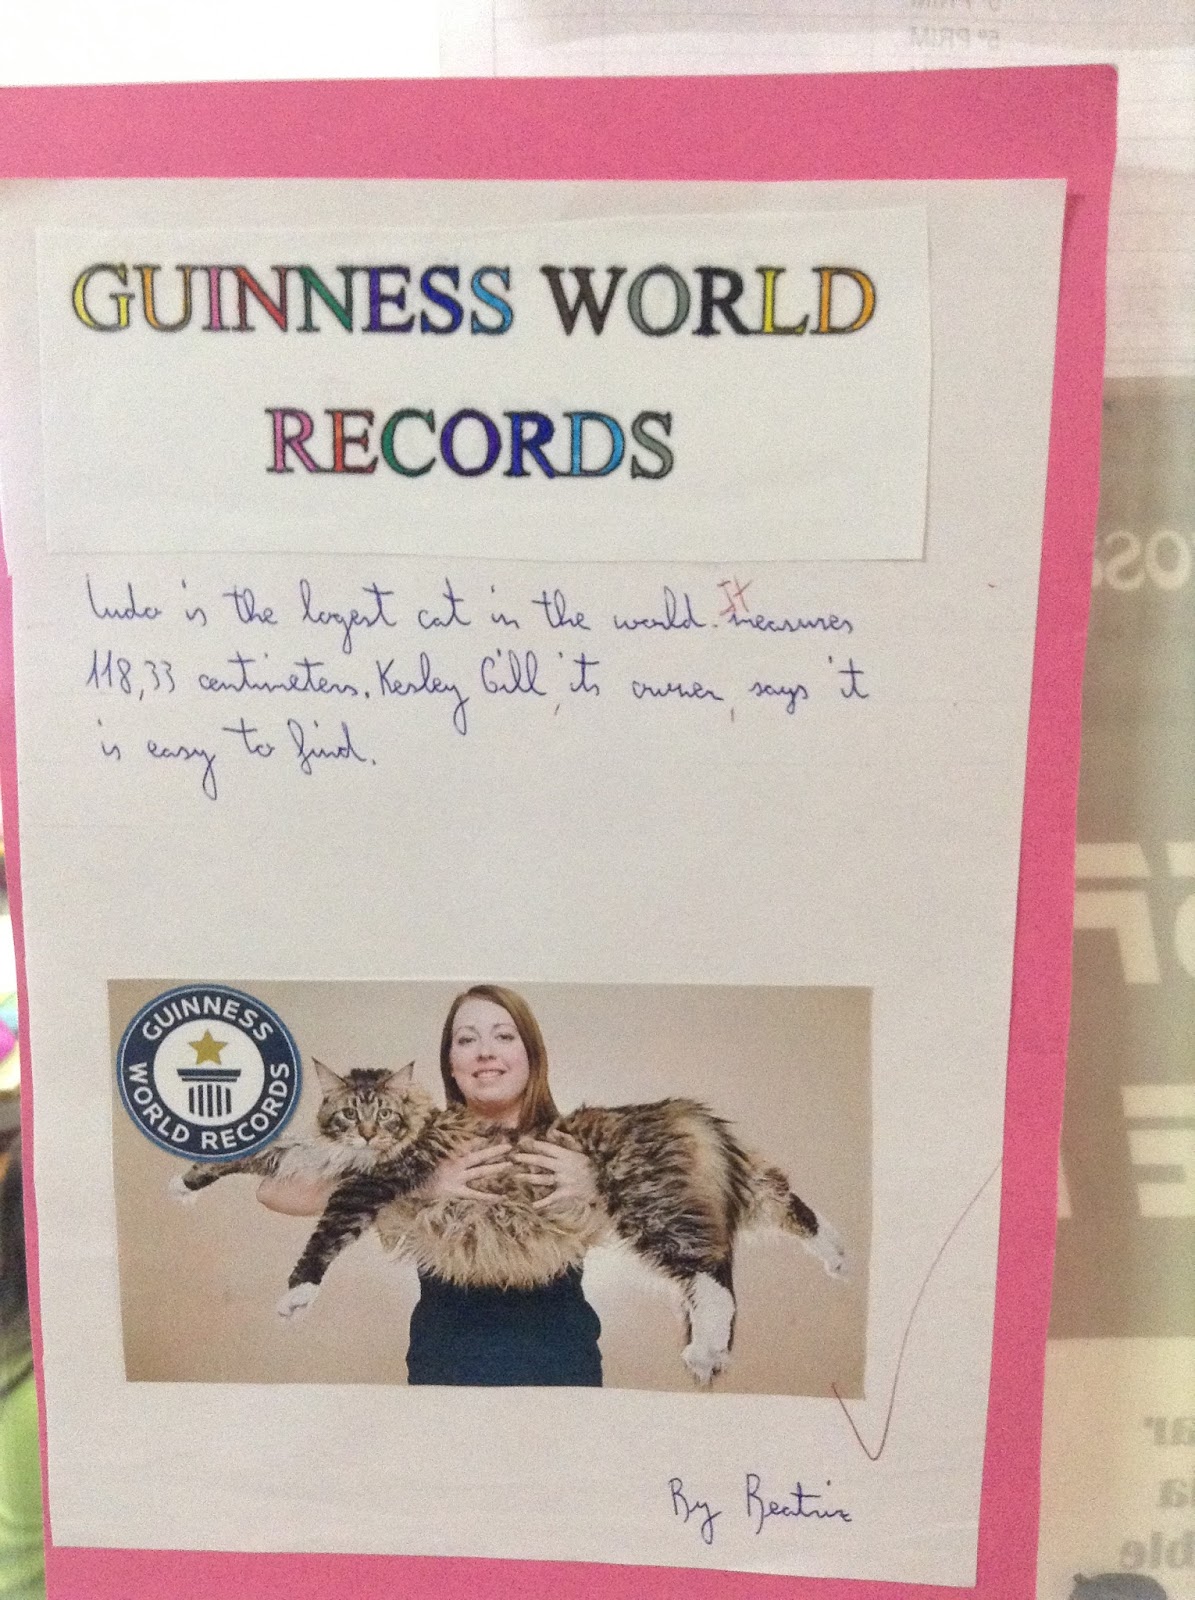 5º PRIM
GUINNESS WORLD
RECORDS
Ludo is the logest cat in the world. It measures
118,33 centimeters. Kesley Gill, its owner, says it
is easy to find.
GUINNESS
WORLD RECORDS
By Beatriz